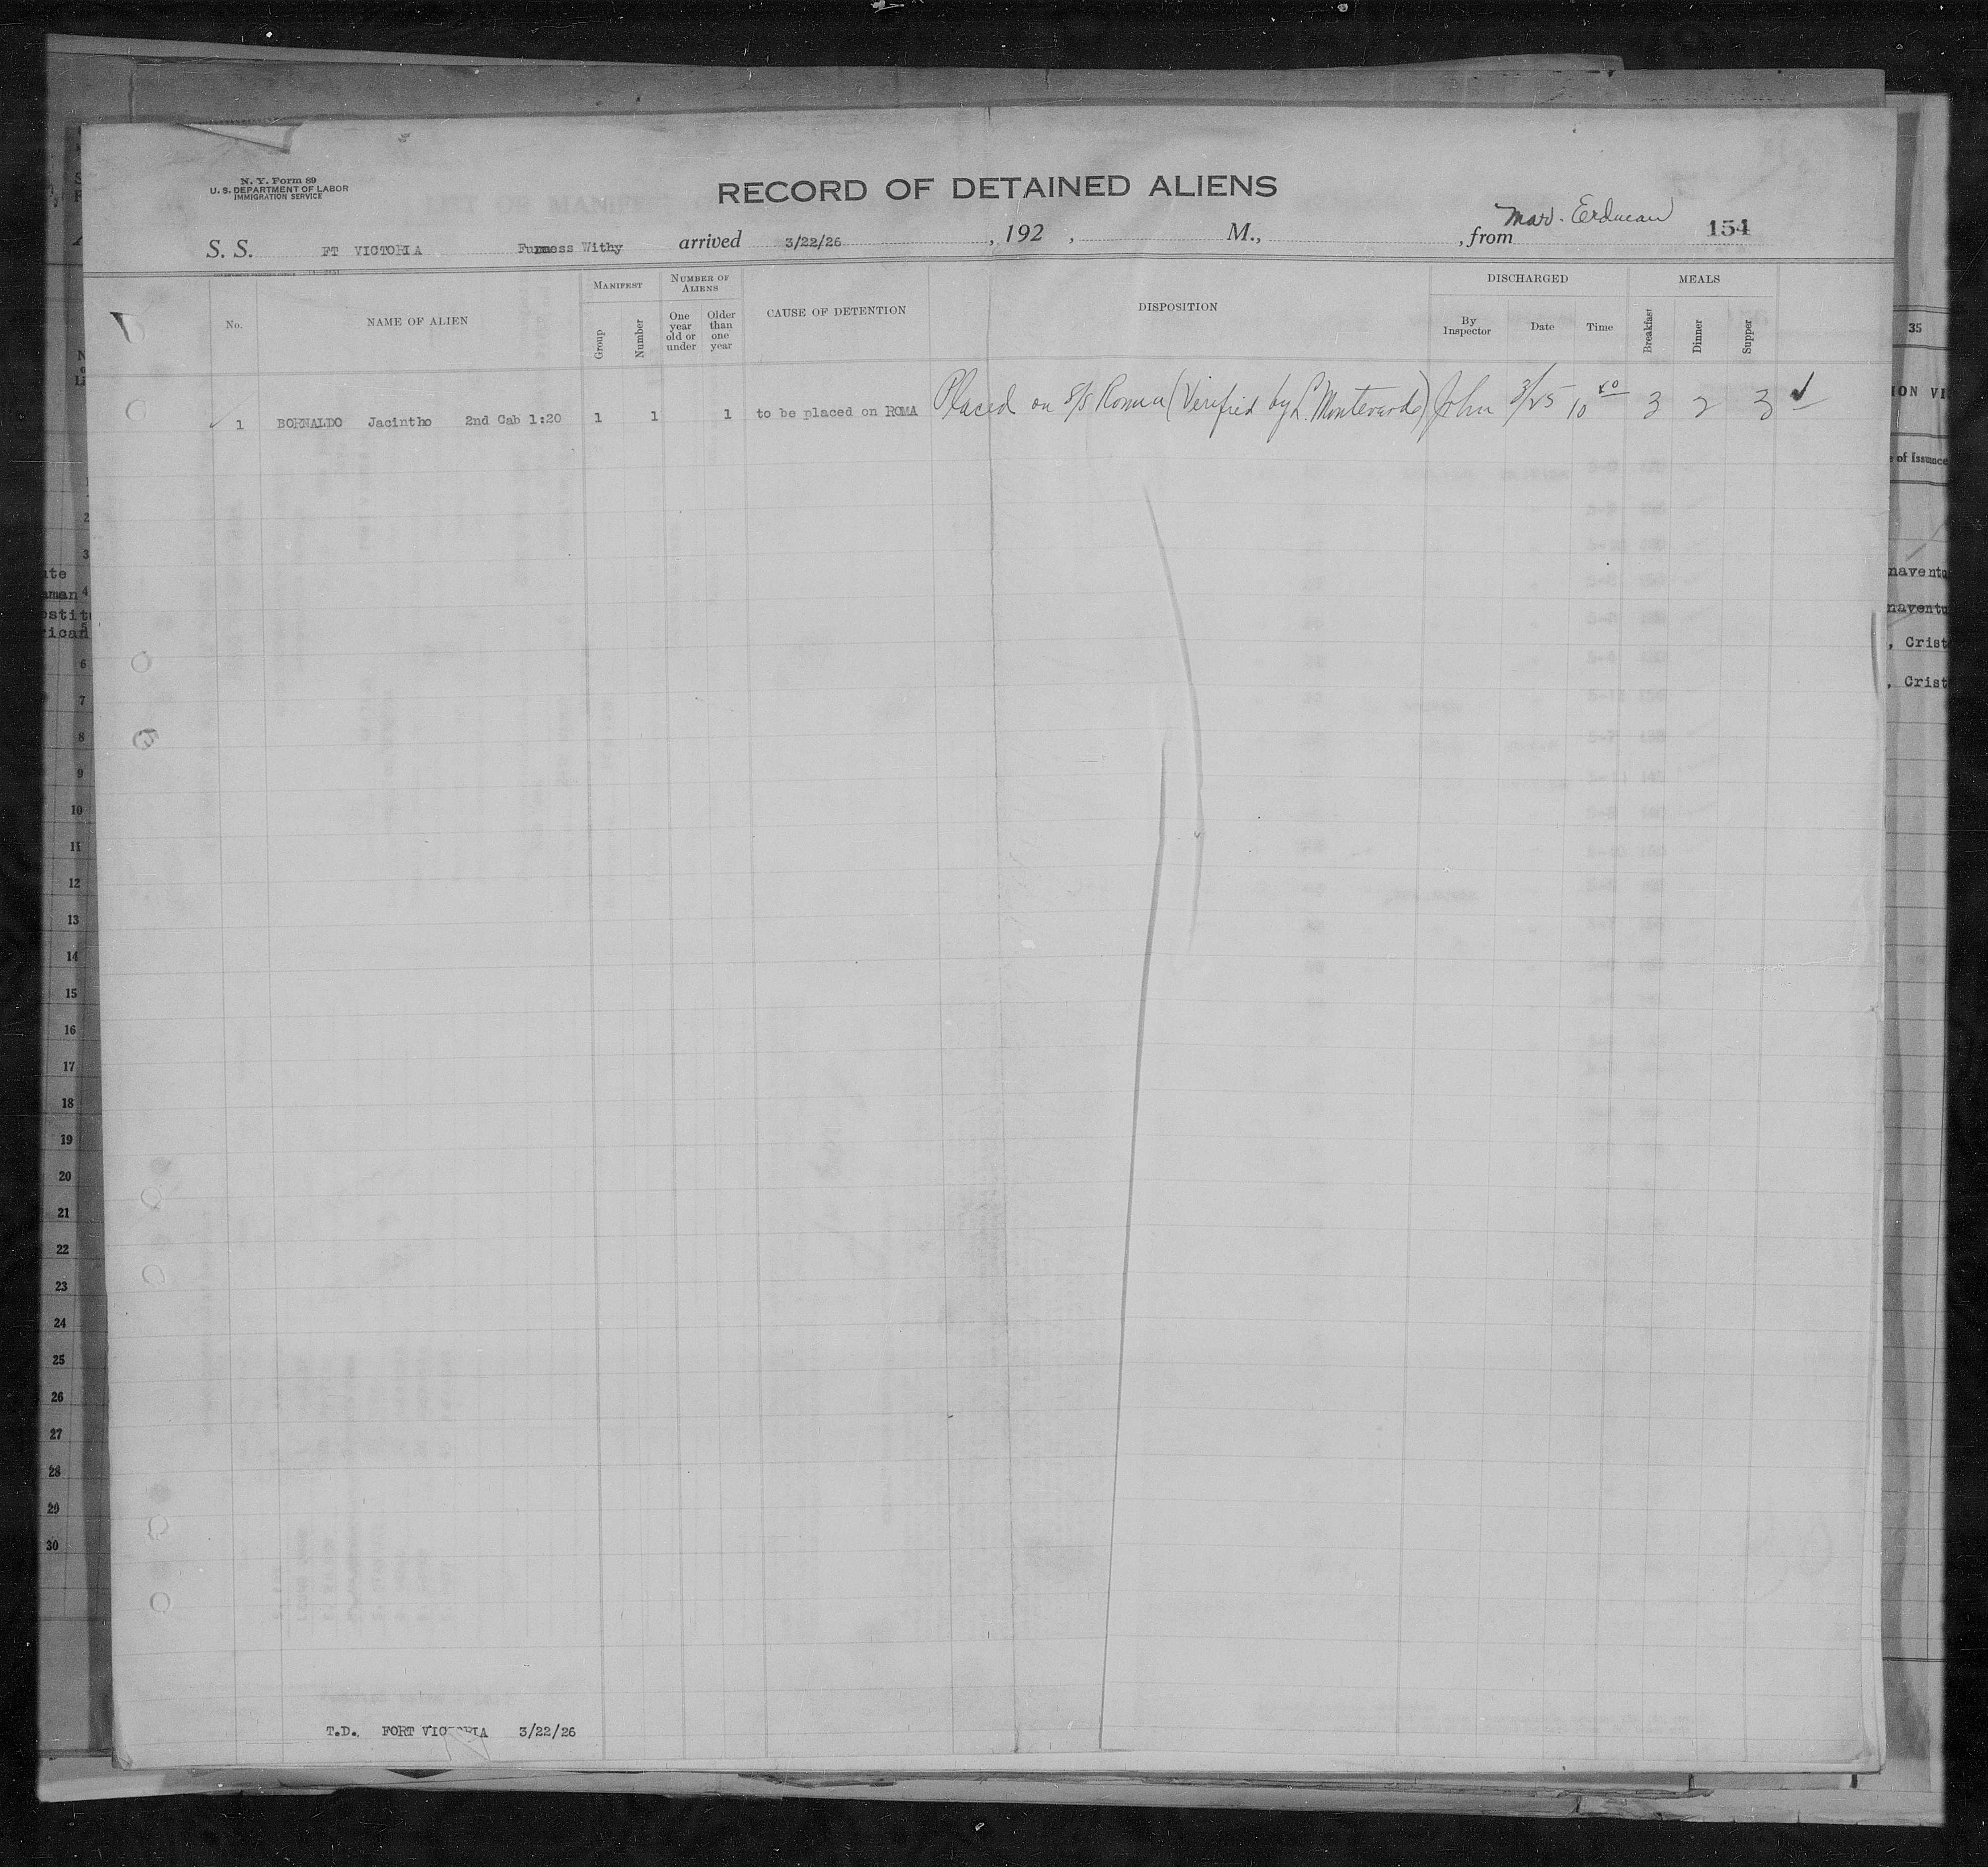 N. Y. Form 89
U. S. DEPARTMENT OF LABOR
IMMIGRATION SERVICE
RECORD OF DETAINED ALIENS
Mar. Erdman
154
S. S. FT VICTORIA Furness Withy arrived 3/22/26, 192 , M., , from
No.
NAME OF ALIEN
MANIFEST
Group
Number
NUMBER OF ALIENS
One year old or under
Older than one year
CAUSE OF DETENTION
DISPOSITION
DISCHARGED
By Inspector
Date
Time
MEALS
Breakfast
Dinner
Supper
1 BORNALDO Jacintho 2nd Cab 1:20 1 1 1 to be placed on ROMA Placed on S/S Roma (Verified by L. Monteverde) John 3/25 10 3 2 3 ✓
T.D. FORT VICTORIA 3/22/26
35
ION VI
of Issuance
naventu
naventu
, Crist
, Crist
ute
aman
ostit
rican
1
2
3
4
5
6
7
8
9
10
11
12
13
14
15
16
17
18
19
20
21
22
23
24
25
26
27
28
29
30